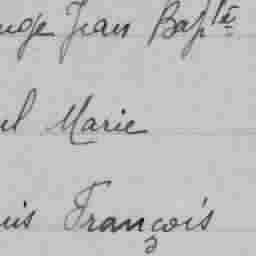 uge Jean Bapte
ul Marie
uis François